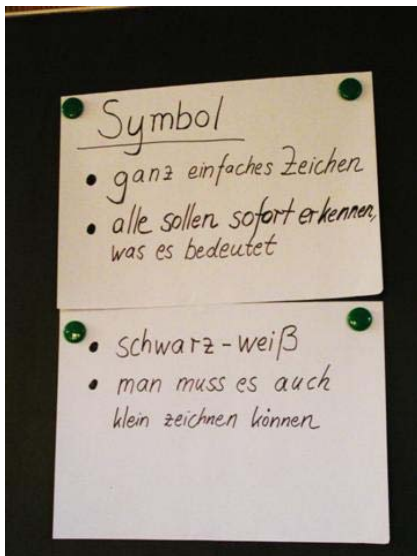 Symbol
• ganz einfaches Zeichen
• alle sollen sofort erkennen,
was es bedeutet
• schwarz-weiß
• man muss es auch
klein zeichnen können